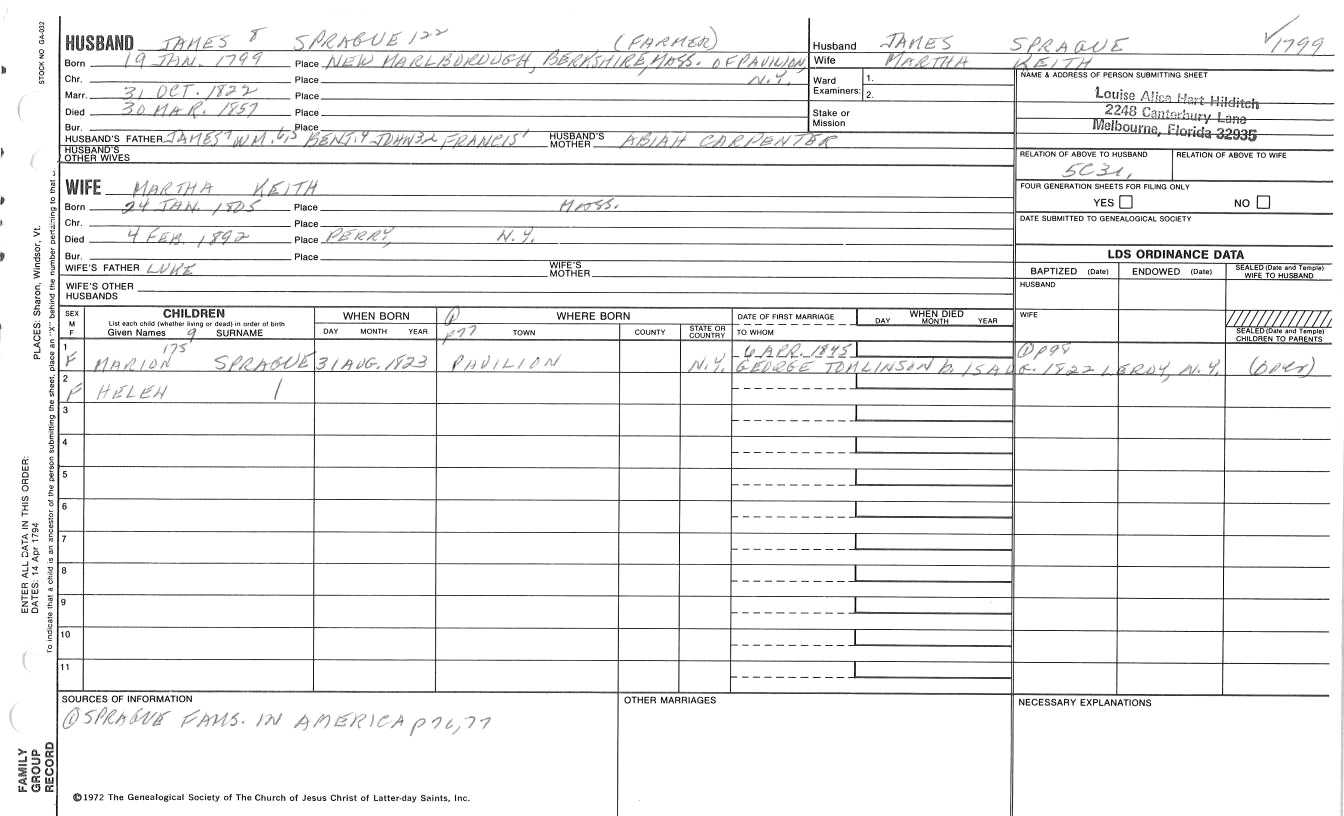 STOCK NO. GA-032
HUSBAND JAMES 8 SPRAGUE 122 (FARMER)
Born 19 JAN. 1799 Place NEW MARLBOROUGH, BERKSHIRE, MASS. OF PAVILION, N.Y.
Chr. Place
Marr. 31 OCT. 1822 Place
Died 30 MAR. 1857 Place
Bur. Place
HUSBAND'S FATHER JAMES 7 WM. 6,5 BENJ. 4 JOHN 3 2 FRANCIS 1 HUSBAND'S MOTHER ABIAH CARPENTER
HUSBAND'S OTHER WIVES
WIFE MARTHA KEITH
Born 24 JAN. 1805 Place MASS.
Chr. Place
Died 4 FEB. 1892 Place PERRY, N.Y.
Bur. Place
WIFE'S FATHER LUKE WIFE'S MOTHER
WIFE'S OTHER HUSBANDS
Husband JAMES SPRAGUE ✓1799
Wife MARTHA KEITH
Ward Examiners: 1. 2.
Stake or Mission
NAME & ADDRESS OF PERSON SUBMITTING SHEET
Louise Alica Hart Hilditch
2248 Canterbury Lane
Melbourne, Florida 32935
RELATION OF ABOVE TO HUSBAND RELATION OF ABOVE TO WIFE
5C3L,
FOUR GENERATION SHEETS FOR FILING ONLY
YES NO
DATE SUBMITTED TO GENEALOGICAL SOCIETY
LDS ORDINANCE DATA
BAPTIZED (Date) ENDOWED (Date) SEALED (Date and Temple) WIFE TO HUSBAND
HUSBAND
WIFE
SEALED (Date and Temple) CHILDREN TO PARENTS
SEX M F
CHILDREN
List each child (whether living or dead) in order of birth
Given Names 9 SURNAME
WHEN BORN
DAY MONTH YEAR
① P77
WHERE BORN
TOWN COUNTY STATE OR COUNTRY
DATE OF FIRST MARRIAGE
TO WHOM
WHEN DIED
DAY MONTH YEAR
1 F MARION 175 SPRAGUE 31 AUG. 1823 PAVILION N.Y. 6 APR. 1845 ① P98
GEORGE TOMLINSON b. 15 AUG. 1822 LEROY, N.Y. (OPER)
2 F HELEN
3
4
5
6
7
8
9
10
11
SOURCES OF INFORMATION
① SPRAGUE FAMS. IN AMERICA P 76, 77
OTHER MARRIAGES
NECESSARY EXPLANATIONS
©1972 The Genealogical Society of The Church of Jesus Christ of Latter-day Saints, Inc.
FAMILY GROUP RECORD
ENTER ALL DATA IN THIS ORDER:
DATES: 14 Apr 1794
PLACES: Sharon, Windsor, Vt.
To indicate that a child is an ancestor of the person submitting the sheet, place an "X" behind the number pertaining to that